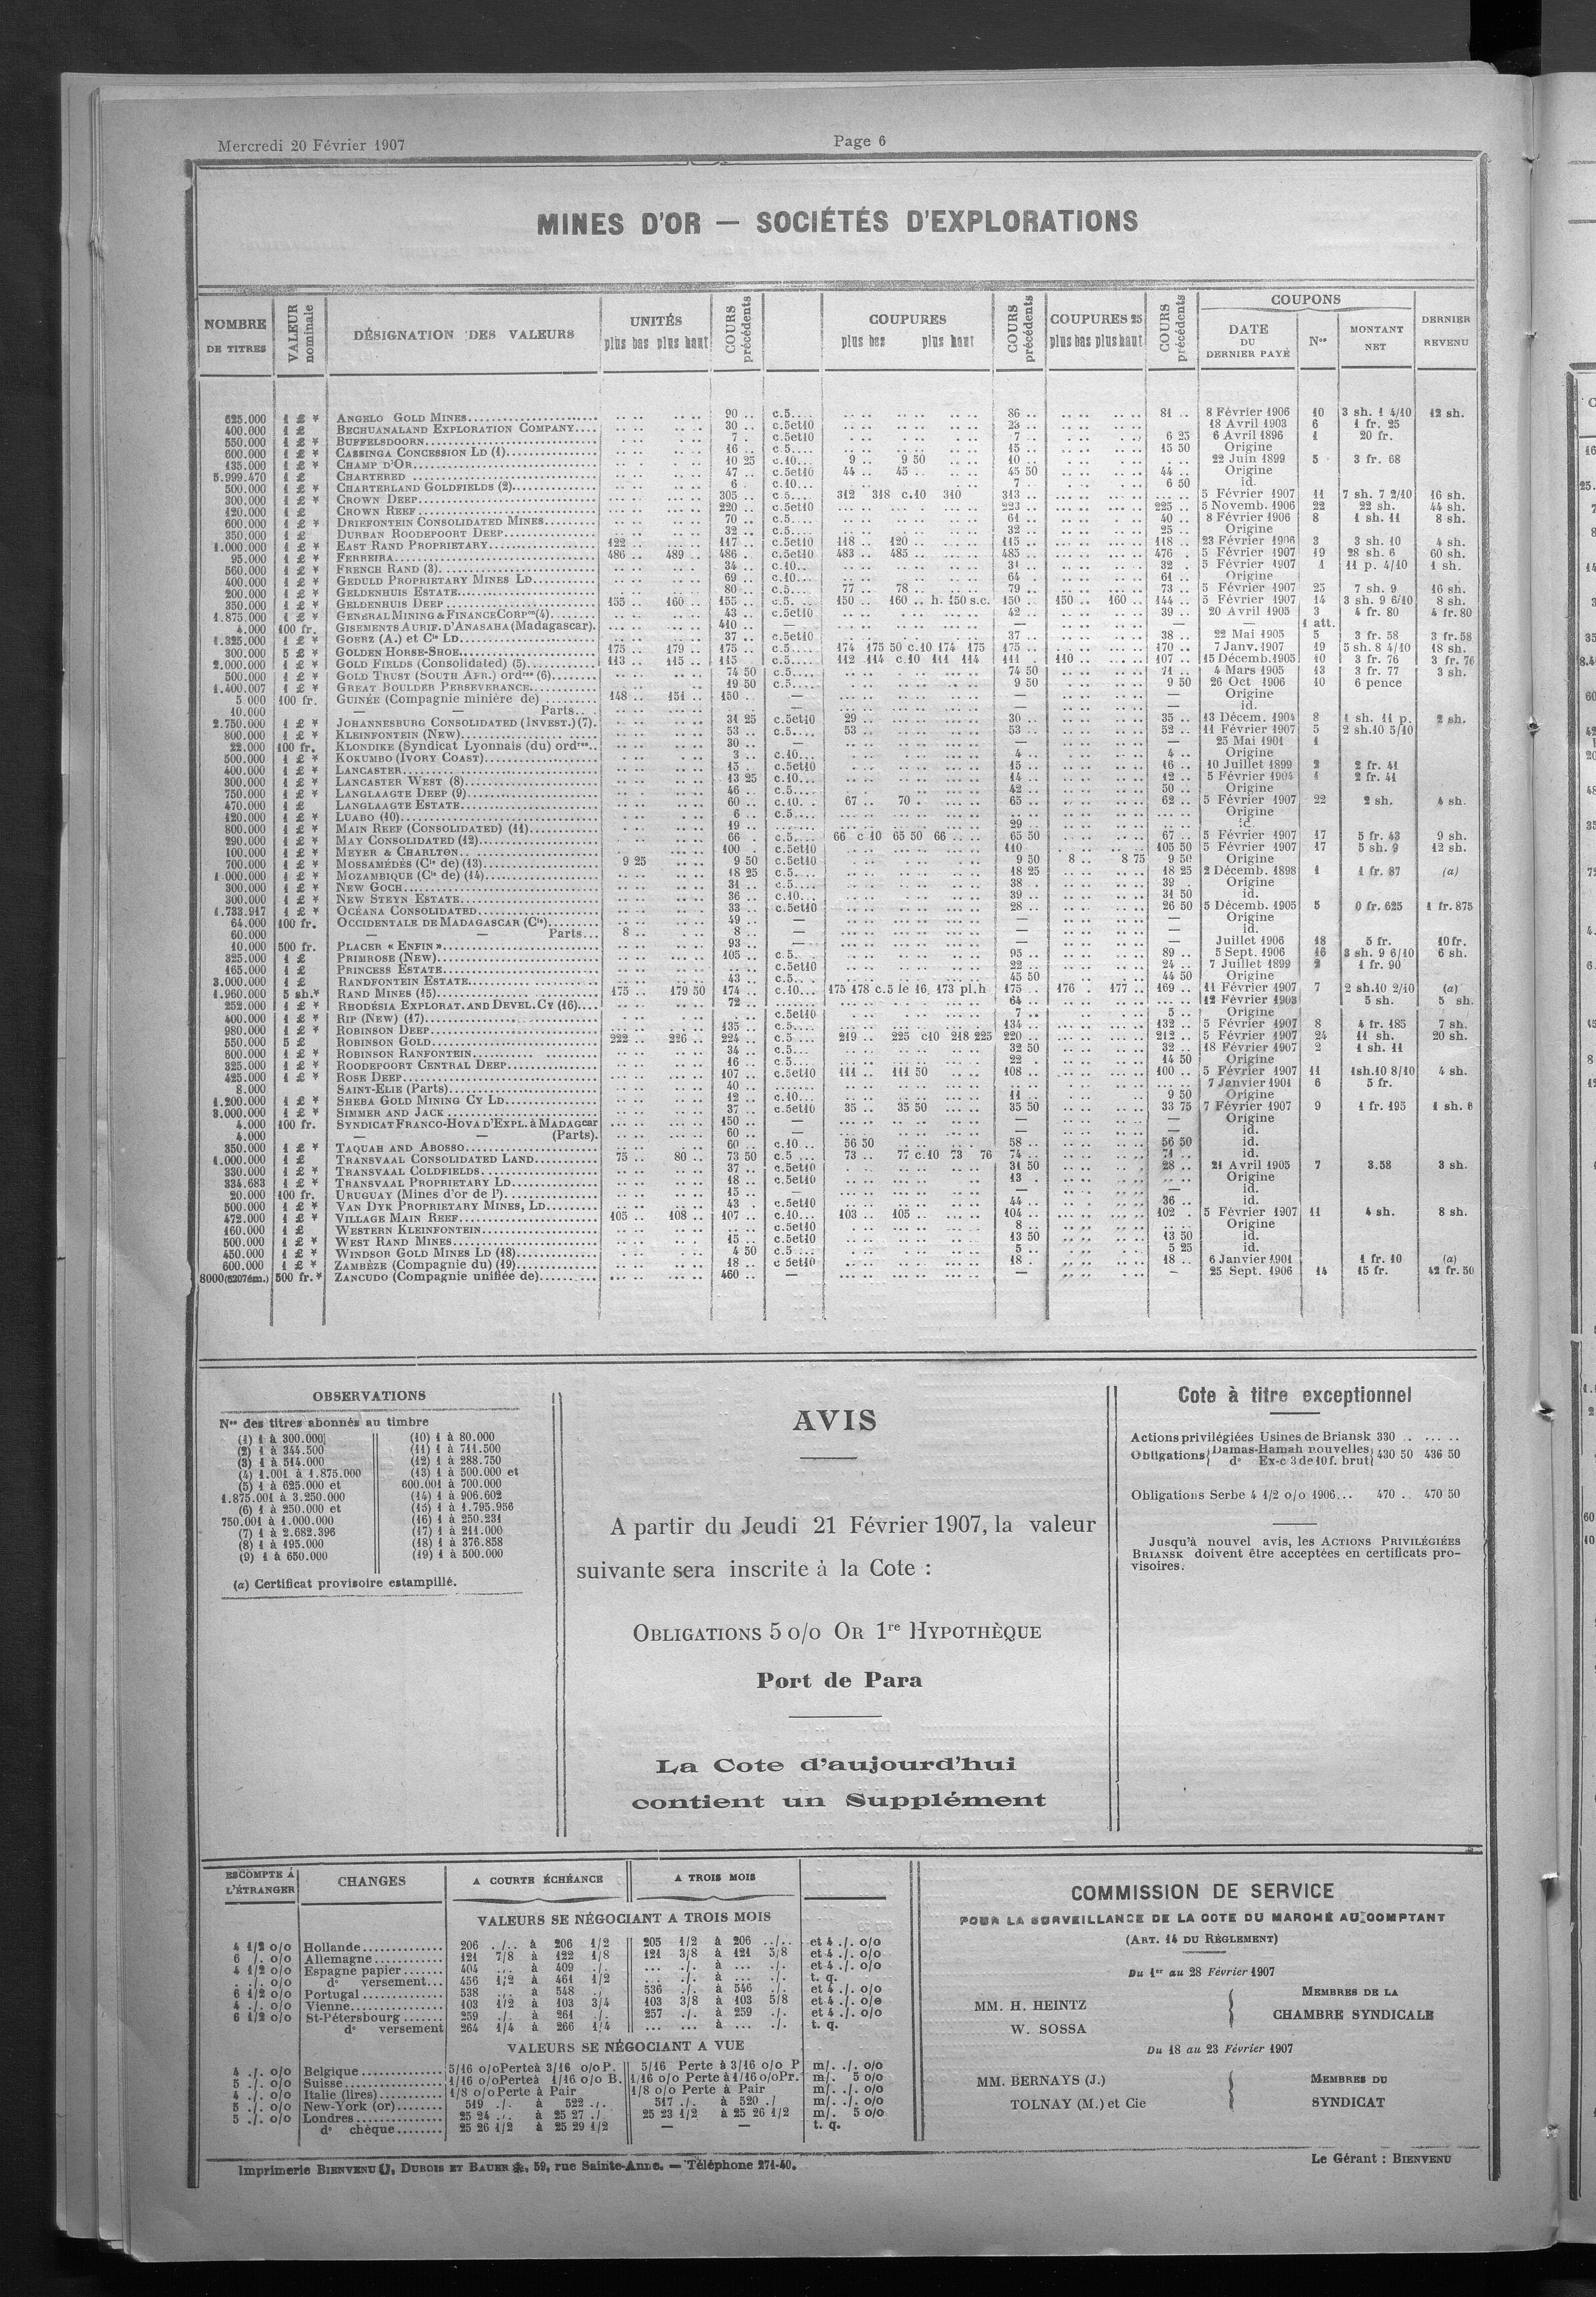 Mercredi 20 Février 1907
Page 6
MINES D'OR — SOCIÉTÉS D'EXPLORATIONS
NOMBRE DE TITRES | VALEUR nominale | DÉSIGNATION DES VALEURS | UNITÉS plus bas plus haut | COURS précédents | COUPURES plus bas plus haut | COURS précédents | COUPURES 25 plus bas plus haut | COURS précédents | COUPONS DATE DU DERNIER PAYÉ | Nos | MONTANT NET | DERNIER REVENU
625.000 1 £ * ANGELO GOLD MINES 90 .. c.5 86 .. 81 .. 8 Février 1906 10 3 sh. 1 4/10 12 sh.
400.000 1 £ BECHUANALAND EXPLORATION COMPANY 30 .. c.5et10 23 .. 18 Avril 1903 6 1 fr. 25
550.000 1 £ * BUFFELSDOORN 7 . c.5et10 7 .. 6 25 6 Avril 1896 1 20 fr.
600.000 1 £ * CASSINGA CONCESSION LD (1) 16 .. c.5 15 .. 15 50 Origine
135.000 1 £ * CHAMP D'OR 10 25 c.10 9 .. 9 50 10 .. 22 Juin 1899 5 3 fr. 68
5.999.470 1 £ CHARTERED 47 .. c.5et10 44 .. 45 .. 45 50 44 .. Origine
500.000 1 £ * CHARTERLAND GOLDFIELDS (2) 6 . c.10 7 .. 6 50 id.
300.000 1 £ * CROWN DEEP 305 .. c.5 312 318 c.10 310 313 .. 5 Février 1907 11 7 sh. 7 2/10 16 sh.
120.000 1 £ CROWN REEF 220 .. c.5et10 223 .. 225 .. 5 Novemb. 1906 22 22 sh. 44 sh.
600.000 1 £ * DRIEFONTEIN CONSOLIDATED MINES 70 .. c.5 61 .. 40 .. 8 Février 1906 8 1 sh. 11 8 sh.
350.000 1 £ DURBAN ROODEPOORT DEEP 32 .. c.5 32 .. 25 .. Origine
1.000.000 1 £ * EAST RAND PROPRIETARY 122 117 .. c.5et10 118 .. 120 115 .. 118 .. 23 Février 1906 3 3 sh. 10 4 sh.
95.000 1 £ * FERREIRA 486 .. 489 .. 486 .. c.5et10 483 .. 485 485 .. 476 .. 5 Février 1907 19 28 sh. 6 60 sh.
560.000 1 £ * FRENCH RAND (3) 34 .. c.10 31 .. 32 . 5 Février 1907 1 11 p. 4/10 1 sh.
400.000 1 £ * GEDULD PROPRIETARY MINES LD 69 .. c.10 64 . 61 .. Origine
200.000 1 £ * GELDENHUIS ESTATE 80 .. c.5 77 .. 78 .. 79 .. 73 .. 5 Février 1907 25 7 sh. 9 16 sh.
350.000 1 £ * GELDENHUIS DEEP 155 .. 160 .. 155 .. c.5. 150 .. 160 .. h. 150 s.c. 150 .. 150 .. 160 .. 144 .. 5 Février 1907 14 3 sh. 9 6/10 8 sh.
1.875.000 1 £ * GENERAL MINING & FINANCE CORPon (4) 43 .. c.5et10 42 .. 39 .. 20 Avril 1905 3 4 fr. 80 4 fr. 80
4.000 100 fr. GISEMENTS AURIF. D'ANASAHA (Madagascar). 410 .. — — — — 1 att.
1.325.000 1 £ * GOERZ (A.) et Cie LD 37 .. c.5et10 37 .. 38 .. 22 Mai 1905 5 3 fr. 58 3 fr. 58
300.000 5 £ * GOLDEN HORSE-SHOE 175 .. 179 .. 175 .. c.5 174 175 50 c.10 174 175 175 .. 170 .. 7 Janv. 1907 19 5 sh. 8 4/10 18 sh.
2.000.000 1 £ * GOLD FIELDS (Consolidated) (5) 113 .. 115 .. 115 .. c.5 112 114 c.10 111 114 111 .. 110 .. 107 .. 15 Décemb. 1905 10 3 fr. 76 3 fr. 76
500.000 1 £ * GOLD TRUST (SOUTH AFR.) ordres (6) 74 50 c.5 74 50 71 .. 4 Mars 1905 13 3 fr. 77 3 sh.
1.400.007 1 £ * GREAT BOULDER PERSEVERANCE 19 50 c.5 9 50 9 50 26 Oct 1906 10 6 pence
5.000 100 fr. GUINÉE (Compagnie minière de) 148 .. 151 .. 150 .. — — — Origine
10.000 — — Parts — — — id.
2.750.000 1 £ * JOHANNESBURG CONSOLIDATED (INVEST.) (7). 31 25 c.5et10 29 .. 30 .. 35 .. 13 Décem. 1904 8 1 sh. 11 p. 2 sh.
800.000 1 £ * KLEINFONTEIN (NEW) 53 .. c.5 53 .. 53 .. 52 .. 11 Février 1907 5 2 sh.10 5/10
22.000 100 fr. KLONDIKE (Syndicat Lyonnais (du) ordres.. 30 .. — — — 25 Mai 1901 1
500.000 1 £ * KOKUMBO (IVORY COAST) 3 .. c.10 4 .. 4 .. Origine
400.000 1 £ * LANCASTER 15 .. c.5et10 15 .. 16 .. 10 Juillet 1899 2 2 fr. 41
300.000 1 £ * LANCASTER WEST (8) 13 25 c.10 14 .. 12 .. 5 Février 1904 1 2 fr. 41
750.000 1 £ * LANGLAAGTE DEEP (9) 46 .. c.5 42 .. 50 .. Origine
470.000 1 £ LANGLAAGTE ESTATE 60 .. c.10 67 .. 70 . 65 .. 62 .. 5 Février 1907 22 2 sh. 4 sh.
120.000 1 £ * LUABO (10) 6 .. c.5 Origine
800.000 1 £ * MAIN REEF (CONSOLIDATED) (11) 19 .. 29 .. id.
290.000 1 £ * MAY CONSOLIDATED (12) 66 . c.5 66 c 10 65 50 66 65 50 67 .. 5 Février 1907 17 5 fr. 43 9 sh.
100.000 1 £ * MEYER & CHARLTON 100 .. c.5et10 110 .. 105 50 5 Février 1907 17 5 sh. 9 12 sh.
700.000 1 £ * MOSSAMÉDÈS (Cie de) (13) 9 25 9 50 c.5et10 9 50 8 .. 8 75 9 50 Origine
1.000.000 1 £ * MOZAMBIQUE (Cie de) (14) 18 25 c.5 18 25 18 25 2 Décemb. 1898 1 1 fr. 87 (a)
300.000 1 £ * NEW GOCH 31 .. c.5 38 . 39 .. Origine
300.000 1 £ * NEW STEYN ESTATE 36 .. c.10 39 .. 31 50 id.
1.733.917 1 £ * OCÉANA CONSOLIDATED 33 .. c.5et10 28 .. 26 50 5 Décemb. 1905 5 0 fr. 625 1 fr. 875
64.000 100 fr. OCCIDENTALE DE MADAGASCAR (Cie) 49 .. — — — Origine
60.000 — — Parts 8 .. 8 .. — — — id.
10.000 500 fr. PLACER « ENFIN » 93 .. — — — Juillet 1906 18 5 fr. 10 fr.
325.000 1 £ PRIMROSE (NEW) 105 .. c.5. 95 .. 89 .. 5 Sept. 1906 16 3 sh. 9 6/10 6 sh.
165.000 1 £ PRINCESS ESTATE c.5et10 22 .. 24 .. 7 Juillet 1899 2 1 fr. 90
3.000.000 1 £ RANDFONTEIN ESTATE 43 .. c.5 45 50 44 50 Origine
1.960.000 5 sh.* RAND MINES (15) 175 .. 179 50 174 .. c.10 175 178 c.5 le 16, 173 pl.h 175 .. 176 177 .. 169 .. 11 Février 1907 7 2 sh.10 2/10 (a)
252.000 1 £ * RHODÉSIA EXPLORAT. AND DEVEL. CY (16) 72 .. 64 .. 12 Février 1903 5 sh. 5 sh.
400.000 1 £ * RIP (NEW) (17) c.5et10 7 .. 5 .. Origine
980.000 1 £ * ROBINSON DEEP 135 .. c.5 134 .. 132 .. 5 Février 1907 8 4 fr. 185 7 sh.
550.000 5 £ ROBINSON GOLD 222 .. 226 .. 224 .. c.5 219 .. 225 c10 218 225 220 .. 212 .. 5 Février 1907 24 11 sh. 20 sh.
800.000 1 £ * ROBINSON RANFONTEIN 34 .. c.5 32 50 32 .. 18 Février 1907 2 1 sh. 11
325.000 1 £ * ROODEPOORT CENTRAL DEEP 16 .. c.5 22 .. 14 50 Origine
425.000 1 £ * ROSE DEEP 107 .. c.5et10 111 .. 111 50 108 .. 100 .. 5 Février 1907 11 1sh.10 8/10 4 sh.
8.000 SAINT-ELIE (Parts) 40 .. 7 Janvier 1901 6 5 fr.
1.200.000 1 £ * SHEBA GOLD MINING CY LD 12 .. c.10 11 .. 9 50 Origine
3.000.000 1 £ * SIMMER AND JACK 37 .. c.5et10 35 .. 35 50 35 50 33 75 7 Février 1907 9 1 fr. 195 1 sh. 6
4.000 100 fr. SYNDICAT FRANCO-HOVA D'EXPL. à MADAGcar 150 .. — — — Origine
4.000 — — (Parts). 60 .. — — — id.
350.000 1 £ * TAQUAH AND ABOSSO 60 .. c.10 .. 56 50 58 .. 56 50 id.
1.000.000 1 £ TRANSVAAL CONSOLIDATED LAND 75 .. 80 .. 73 50 c.5 73 .. 77 c.10 73 76 74 .. 71 .. id.
330.000 1 £ * TRANSVAAL COLDFIELDS 37 .. c.5et10 31 50 28 .. 21 Avril 1905 7 3.58 3 sh.
334.683 1 £ * TRANSVAAL PROPRIETARY LD 18 .. c.5et10 13 . Origine
20.000 100 fr. URUGUAY (Mines d'or de l') 15 .. — — — id.
500.000 1 £ * VAN DYK PROPRIETARY MINES, LD 43 . c.5et10 44 .. 36 .. id.
472.000 1 £ * VILLAGE MAIN REEF 105 .. 108 .. 107 .. c.10 103 .. 105 104 .. 102 . 5 Février 1907 11 4 sh. 8 sh.
160.000 1 £ WESTERN KLEINFONTEIN c.5et10 8 .. Origine
500.000 1 £ * WEST RAND MINES 15 .. c.5et10 13 50 13 50 id.
450.000 1 £ * WINDSOR GOLD MINES LD (18) 4 50 c.5 5 .. 5 25 id.
600.000 1 £ * ZAMBÈZE (Compagnie du) (19) 18 .. c 5et10 18 . 18 .. 6 Janvier 1901 1 fr. 10 (a)
8000(6207ém.) 500 fr.* ZANCUDO (Compagnie unifiée de) 460 .. — — — 25 Sept. 1906 14 15 fr. 42 fr. 50
OBSERVATIONS
Nos des titres abonnés au timbre
(1) 1 à 300.000
(2) 1 à 344.500
(3) 1 à 514.000
(4) 1.001 à 1.875.000
(5) 1 à 625.000 et
1.875.001 à 3.250.000
(6) 1 à 250.000 et
750.001 à 1.000.000
(7) 1 à 2.682.396
(8) 1 à 195.000
(9) 1 à 650.000
(10) 1 à 80.000
(11) 1 à 711.500
(12) 1 à 288.750
(13) 1 à 500.000 et
600.001 à 700.000
(14) 1 à 906.602
(15) 1 à 1.795.956
(16) 1 à 250.231
(17) 1 à 211.000
(18) 1 à 376.858
(19) 1 à 500.000
(a) Certificat provisoire estampillé.
AVIS
A partir du Jeudi 21 Février 1907, la valeur
suivante sera inscrite à la Cote :
OBLIGATIONS 5 o/o OR 1re HYPOTHÈQUE
Port de Para
La Cote d'aujourd'hui
contient un Supplément
Cote à titre exceptionnel
Actions privilégiées Usines de Briansk 330 .. ... ..
Obligations { Damas-Hamah nouvelles
do Ex-c 3 de 10 f. brut } 430 50 436 50
Obligations Serbe 4 1/2 o/o 1906... 470 .. 470 50
Jusqu'à nouvel avis, les ACTIONS PRIVILÉGIÉES
BRIANSK doivent être acceptées en certificats pro-
visoires.
ESCOMPTE A L'ÉTRANGER | CHANGES | A COURTE ÉCHÉANCE | A TROIS MOIS
VALEURS SE NÉGOCIANT A TROIS MOIS
4 1/2 o/o Hollande 206 ./.. à 206 1/2 205 1/2 à 206 ../.. et 4 ./. o/o
6 /. o/o Allemagne 121 7/8 à 122 1/8 121 3/8 à 121 5/8 et 4 ./. o/o
4 1/2 o/o Espagne papier 404 ... à 409 ./. ... ./. à ... ./. et 4 ./. o/o
. ./. o/o do versement 456 1/2 à 461 1/2 ... ./. à ... ./. t. q.
6 1/2 o/o Portugal 538 ... à 548 ./ 536 ./. à 546 ./. et 4 ./. o/o
4 ./. o/o Vienne 103 1/2 à 103 3/4 103 3/8 à 103 5/8 et 4 ./. o/o
6 1/2 o/o St-Pétersbourg 259 ./. à 261 ./. 257 ./. à 259 ./. et 4 ./. o/o
do versement 264 1/4 à 266 1/4 ... ... à ... ./. t. q.
VALEURS SE NÉGOCIANT A VUE
4 ./. o/o Belgique 5/16 o/o Perte à 3/16 o/o P. 5/16 Perte à 3/16 o/o P m/. ./. o/o
5 ./. o/o Suisse 1/16 o/o Perte à 1/16 o/o B. 1/16 o/o Perte à 1/16 o/o Pr. m/. 5 o/o
4 ./. o/o Italie (lires) 1/8 o/o Perte à Pair 1/8 o/o Perte à Pair m/. ./. o/o
5 ./. o/o New-York (or) 519 ./. à 522 ./. 517 ./. à 520 ./ m/. ./. o/o
5 ./. o/o Londres 25 24 ./. à 25 27 ./. 25 23 1/2 à 25 26 1/2 m/. 5 o/o
do chèque 25 26 1/2 à 25 29 1/2 — — t. q.
COMMISSION DE SERVICE
POUR LA SURVEILLANCE DE LA COTE DU MARCHÉ AU COMPTANT
(ART. 14 DU RÈGLEMENT)
Du 1er au 28 Février 1907
MM. H. HEINTZ
W. SOSSA
MEMBRES DE LA
CHAMBRE SYNDICALE
Du 18 au 23 Février 1907
MM. BERNAYS (J.)
TOLNAY (M.) et Cie
MEMBRES DU
SYNDICAT
Imprimerie BIENVENU, DUBOIS ET BAUER, 59, rue Sainte-Anne. — Téléphone 271-40.
Le Gérant : BIENVENU